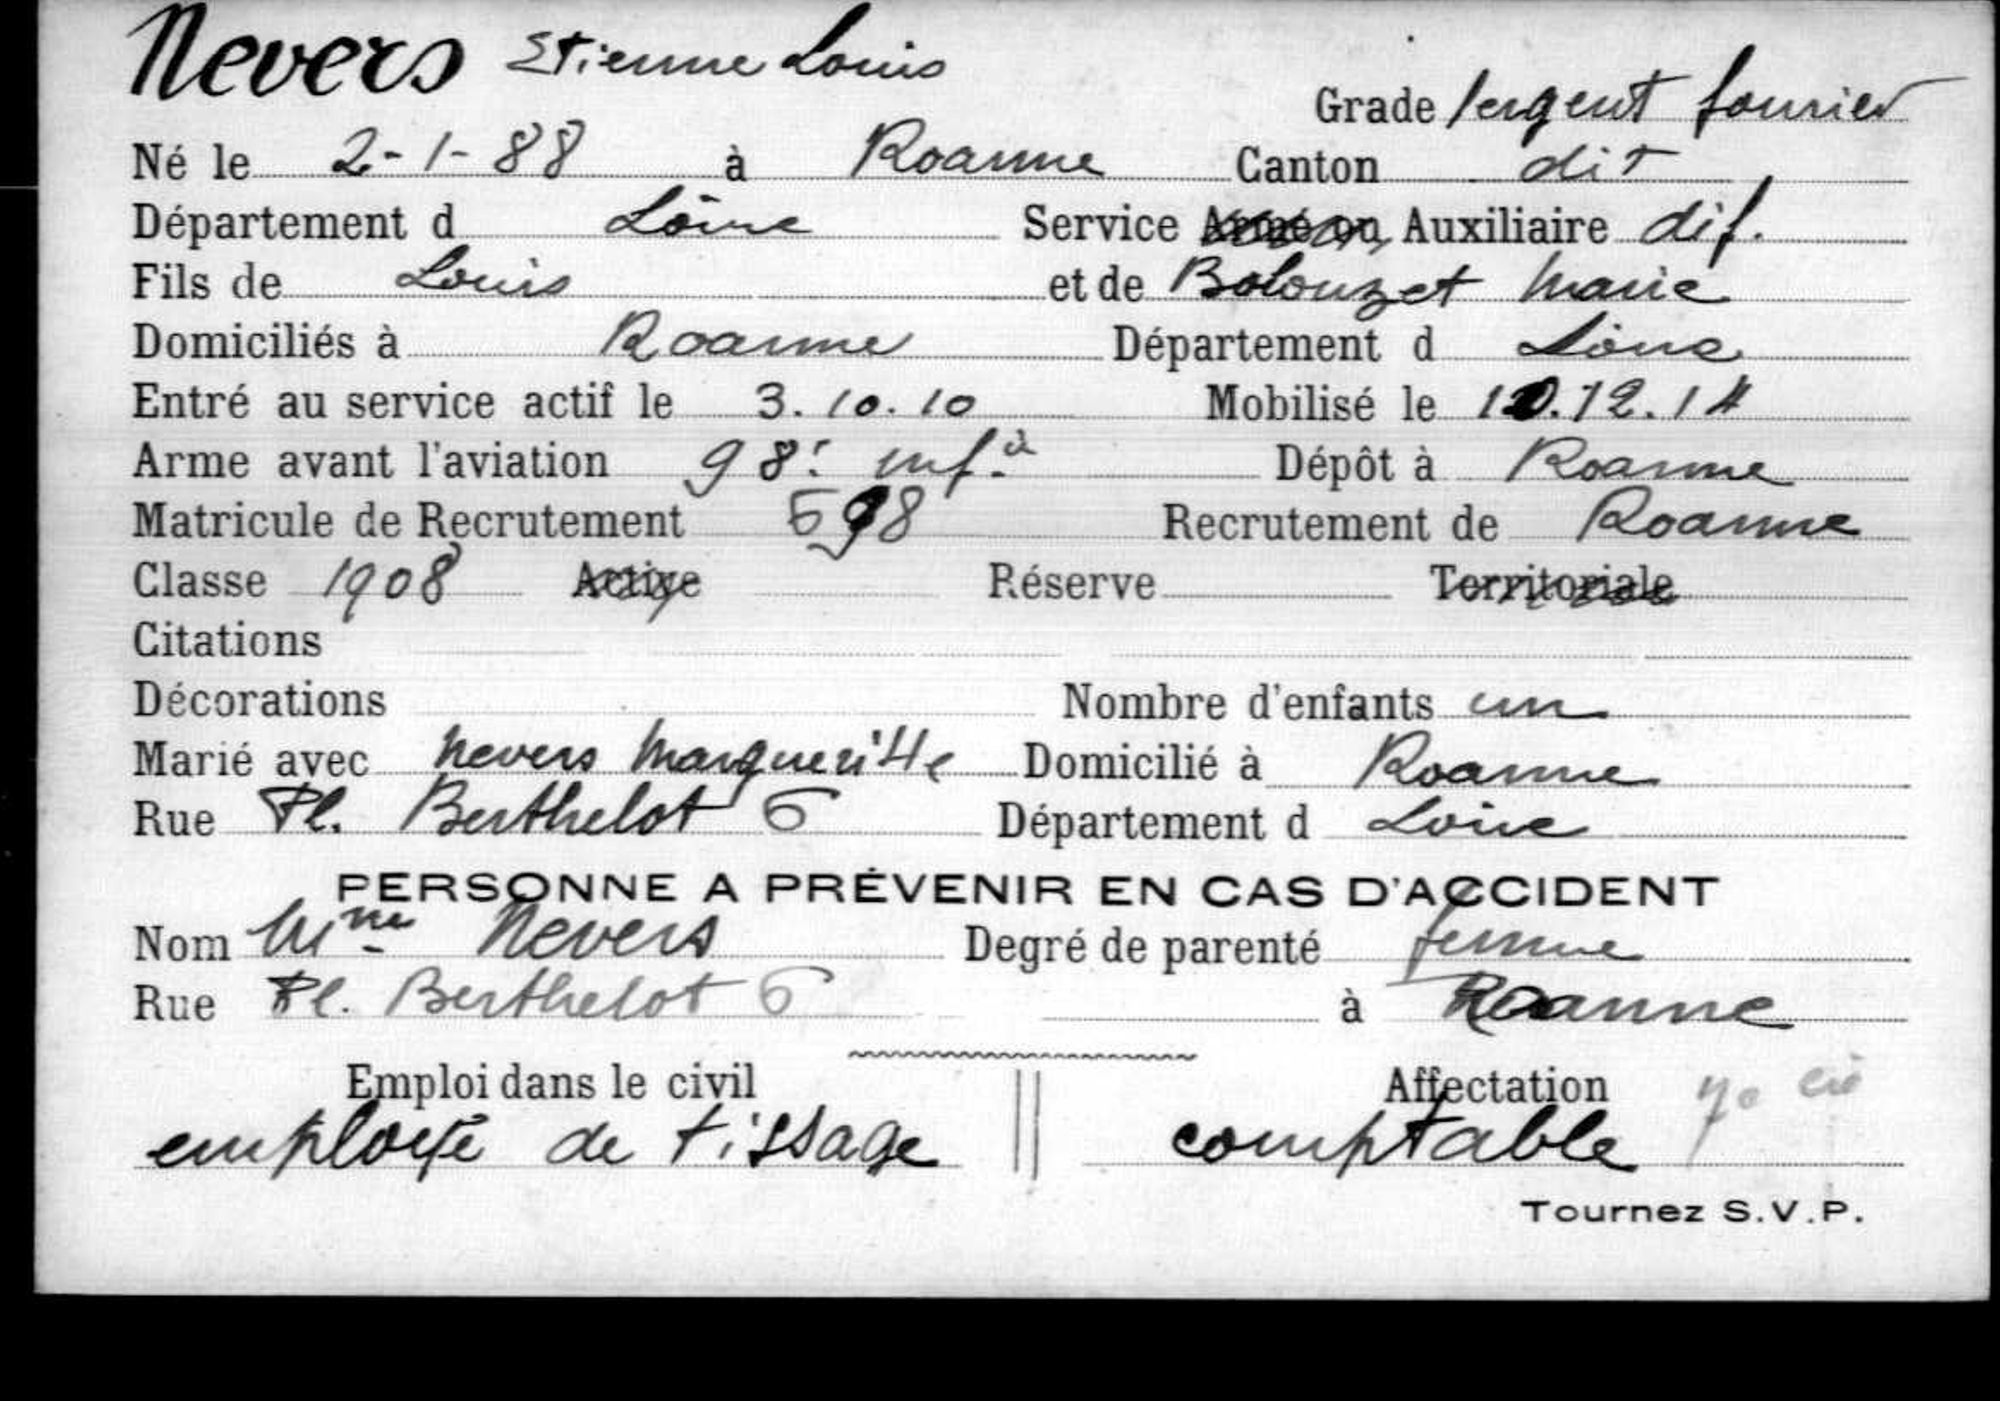 Nevers Etienne Louis
Grade sergent fourier
Né le 2-1-88 à Roanne Canton dit
Département d Loire Service Armé ou Auxiliaire dif.
Fils de Louis et de Bolouzet Marie
Domiciliés à Roanne Département d Loire
Entré au service actif le 3.10.10 Mobilisé le 10.12.14
Arme avant l'aviation 98e inf.ie Dépôt à Roanne
Matricule de Recrutement 598 Recrutement de Roanne
Classe 1908 Active Réserve Territoriale
Citations
Décorations Nombre d'enfants un
Marié avec Nevers Margueritte Domicilié à Roanne
Rue Pl. Berthelot 6 Département d Loire
PERSONNE A PRÉVENIR EN CAS D'ACCIDENT
Nom Mme Nevers Degré de parenté femme
Rue Pl. Berthelot 6 à Roanne
Emploi dans le civil Affectation 7e cie
employé de tissage comptable
Tournez S.V.P.